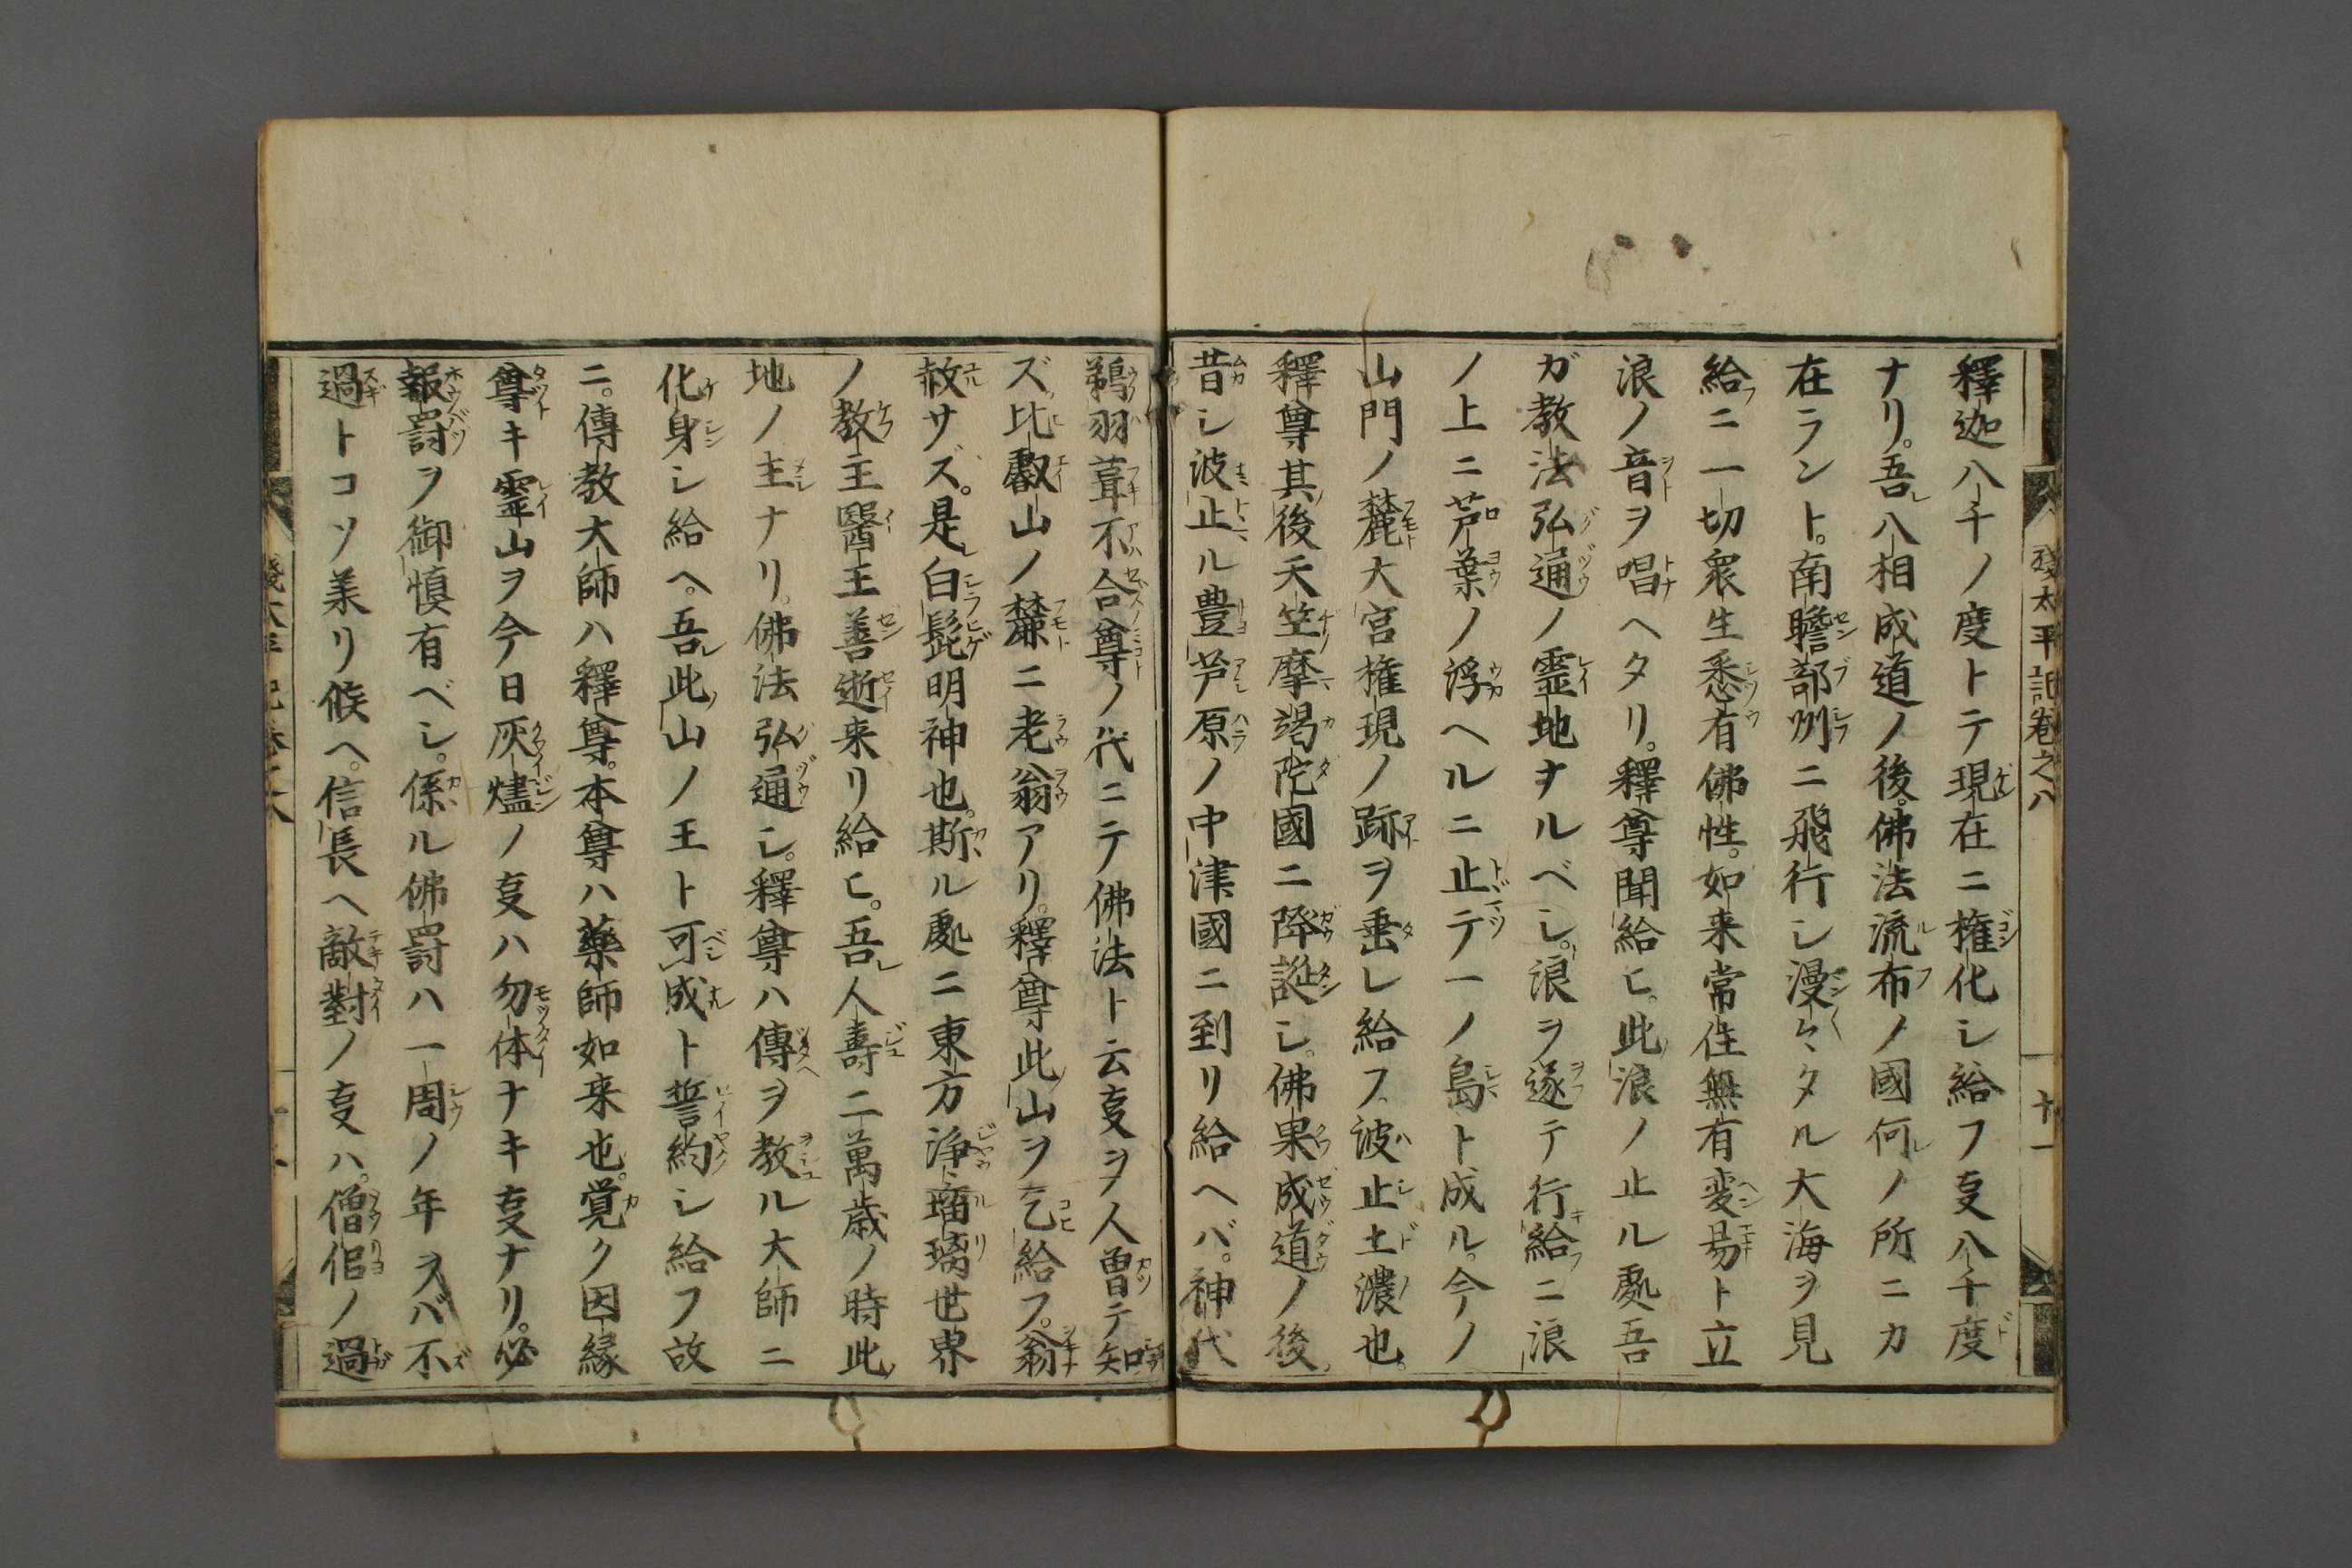 殘太平記卷之八
十一
釋迦八千ノ度トテ現在ニ権化シ給フ㕝八千度
ナリ。吾レ八相成道ノ後。佛法流布ノ國何レノ所ニカ
在ラント。南瞻部州ニ飛行シ漫々タル大海ヲ見
給フニ一切衆生悉有佛性。如来常住無有変易ト立
浪ノ音ヲ唱ヘタリ。釋尊聞給ヒ。此ノ浪ノ止ル處吾
ガ教法弘通ノ霊地ヲルベシ。ト浪ヲ逐テ行給フニ浪
ノ上ニ芦葉ノ浮ヘルニ止テ一ノ島ト成ル。今ノ
山門ノ麓大宮権現ノ跡ヲ垂レ給フ。波止土濃也。
釋尊其ノ後天笠摩竭陀國ニ降誕シ。佛果成道ノ後。
昔シ波止ル豊芦原ノ中津國ニ到リ給ヘバ。神代
鵜羽葺不合尊ノ代ニテ佛法ト云㕝ヲ人曽テ知
ズ。比叡山ノ麓ニ老翁アリ。釋尊此ノ山ヲ乞給フ。翁
赦サズ。是レ白髭明神也。斯ル處ニ東方浄瑠璃世界
ノ教主醫王善逝来リ給ヒ。吾レ人壽二萬歳ノ時此ノ
地ノ主ナリ。佛法弘通シ。釋尊ハ傳ヲ教ル大師ニ
化身シ給ヘ。吾レ此ノ山ノ王ト可成ト誓約シ給フ故
ニ。傳教大師ハ釋尊。本尊ハ藥師如来也。覚ク因縁
尊キ霊山ヲ今日灰燼ノ㕝ハ勿体ナキ㕝ナリ。必
報罰ヲ御慎有ベシ。係ル佛罰ハ一周ノ年ヲバ不
過トコソ業リ候ヘ。信長ヘ敵對ノ㕝ハ。僧侶ノ過